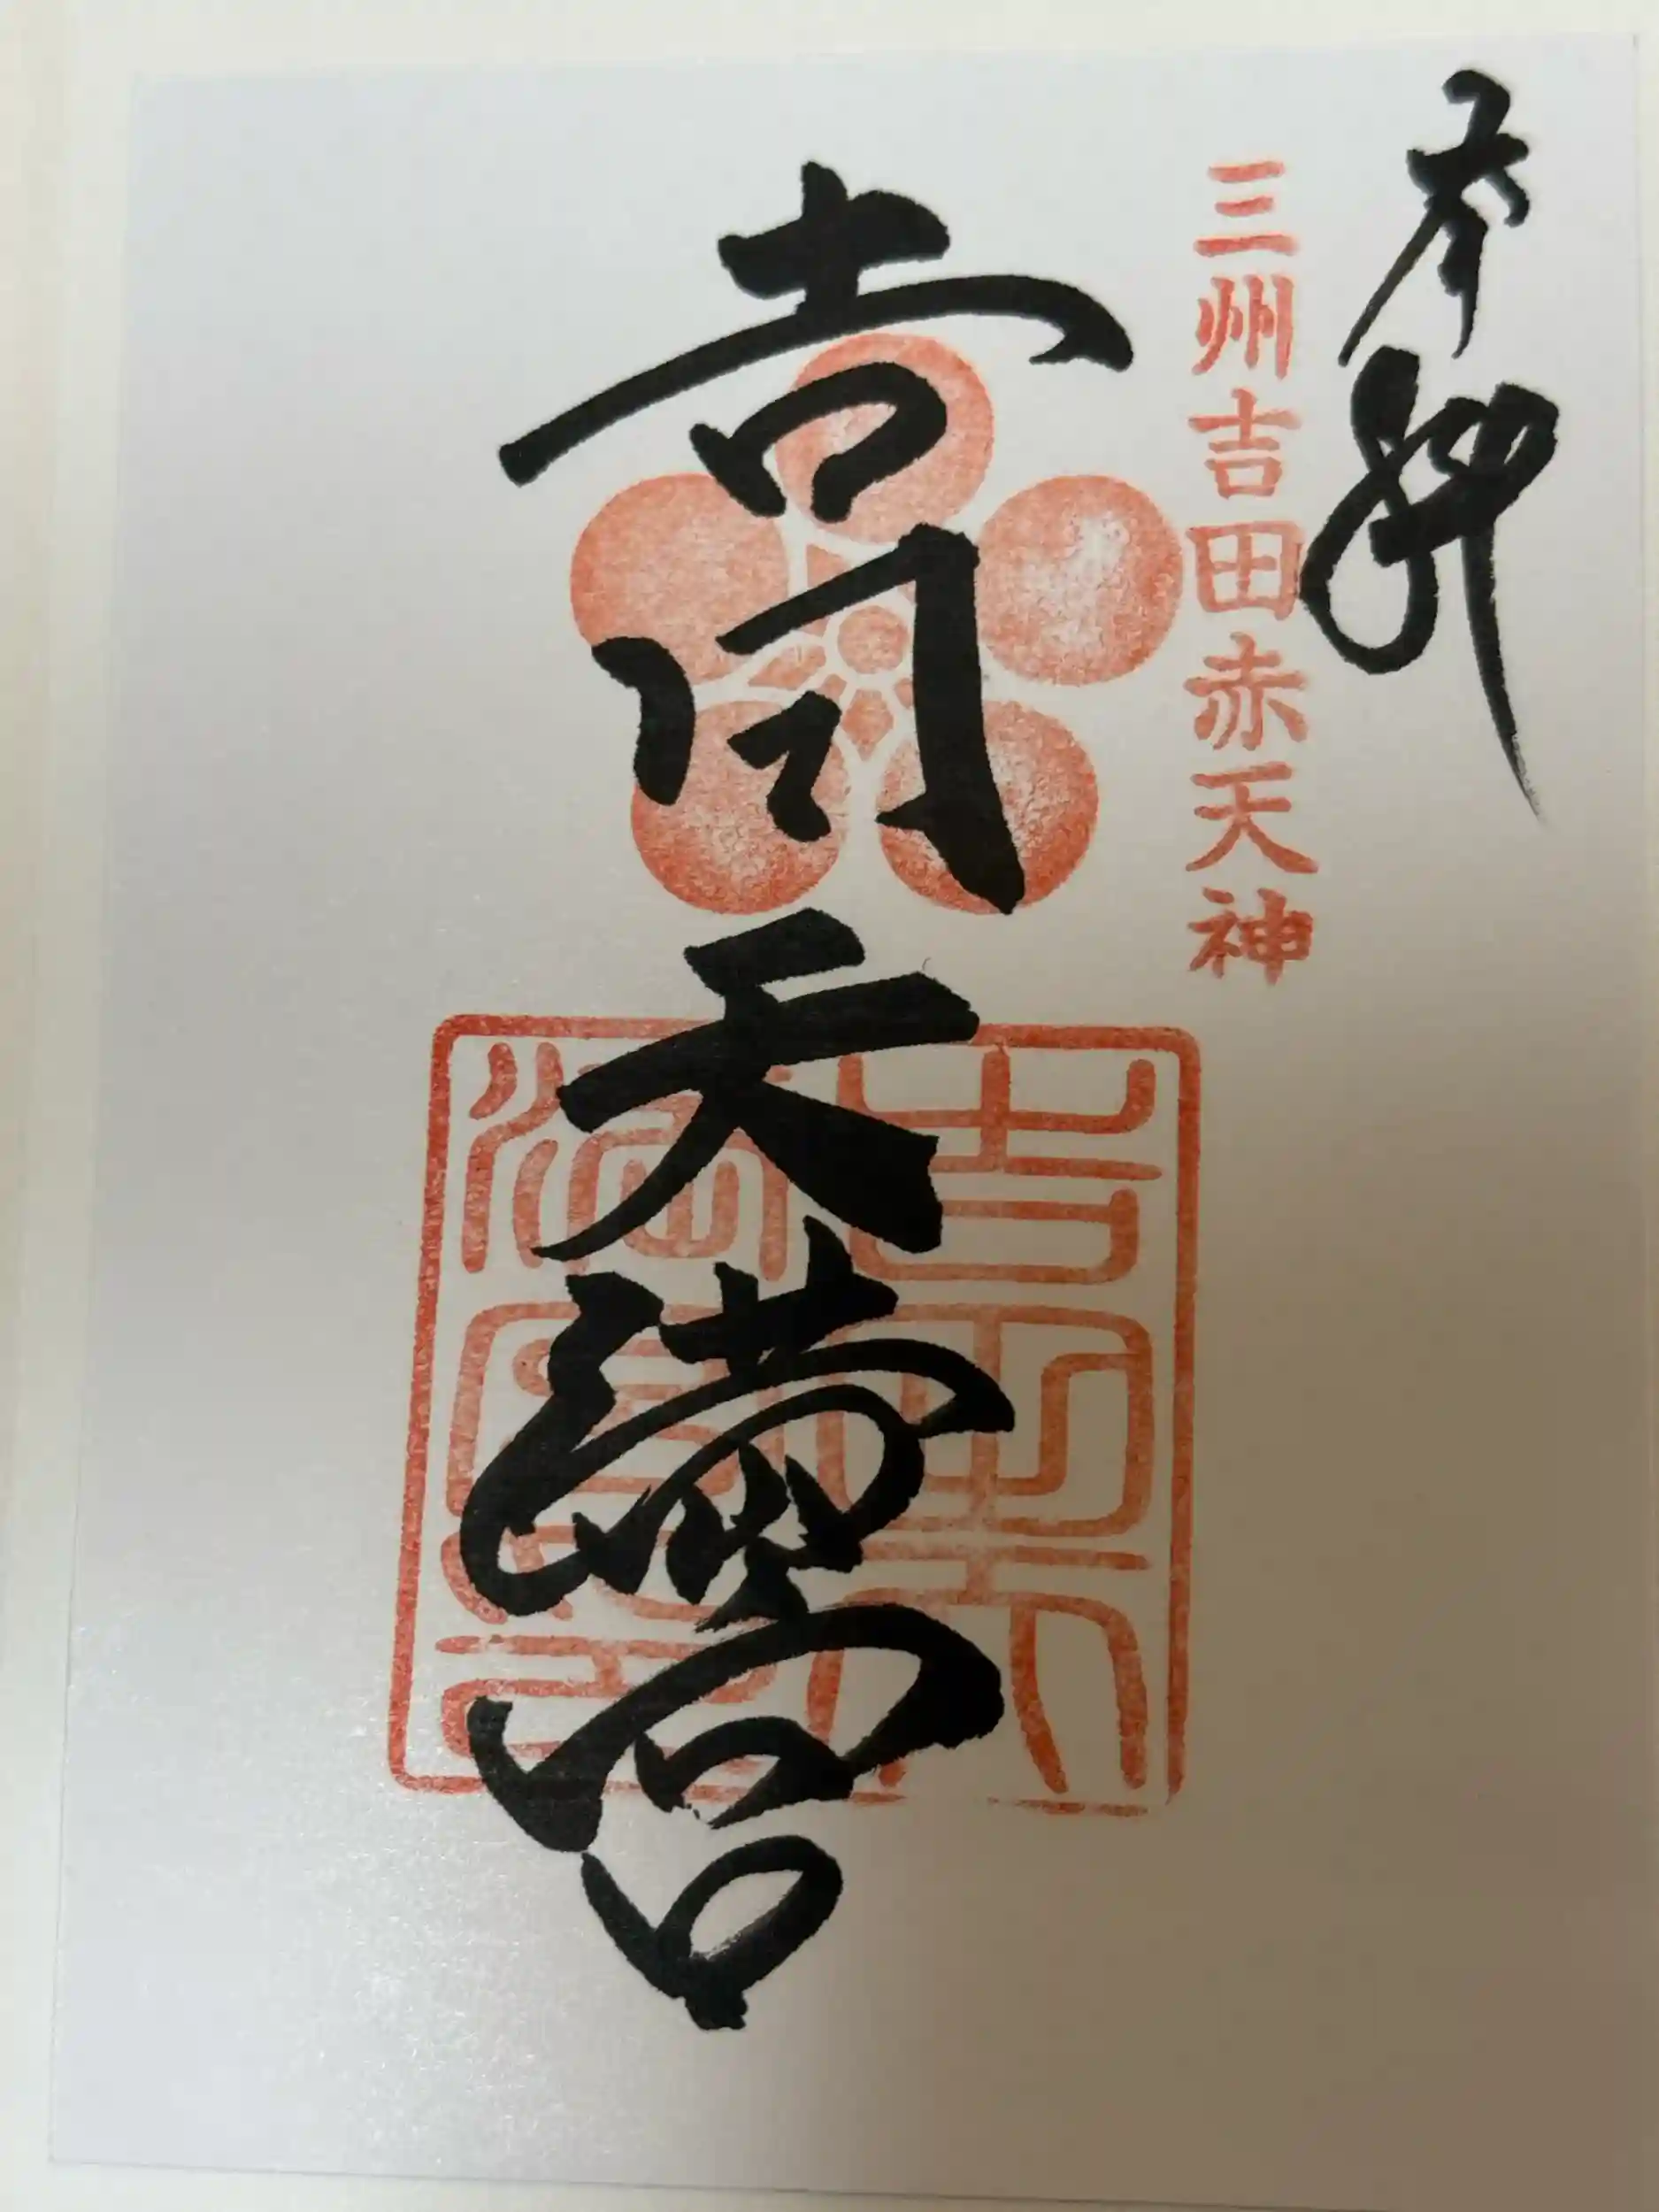 奉拝
三州吉田赤天神
吉田天満宮
吉田天
満宮之